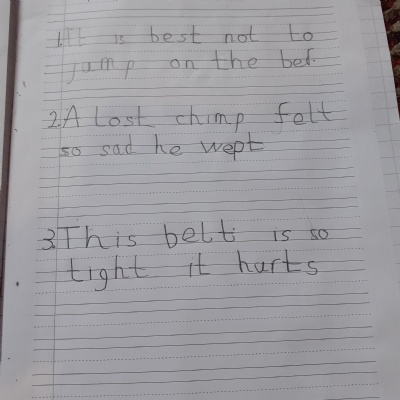 1.It is best not to
jamp on the bed.
2.A lost chimp felt
so sad he wept
3.This belt is so
tight it hurts